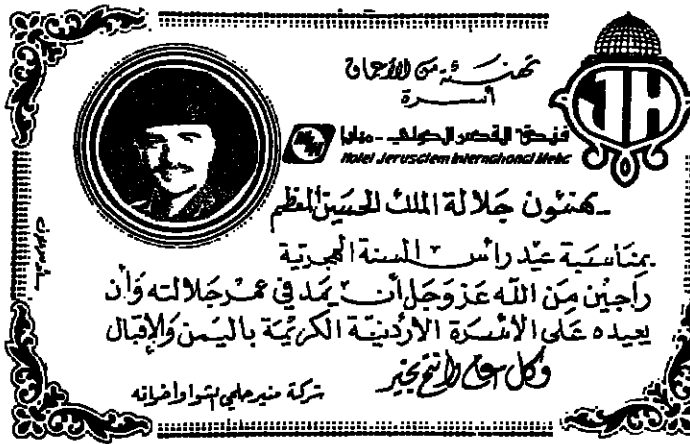 تهنئة من الأعماق
أسرة
JH
فندق القدس الدولي - ميليا
Hotel Jerusalem International Melia
يهنئون جلالة الملك الحسين المعظم
بمناسبة عيد رأس السنة الهجرية
راجين من الله عز وجل أن يمد في عمر جلالته وأن
يعيده على الأسرة الأردنية الكريمة باليمن والإقبال
وكل عام وانتم بخير
شركة منير حلبي وإخوانه